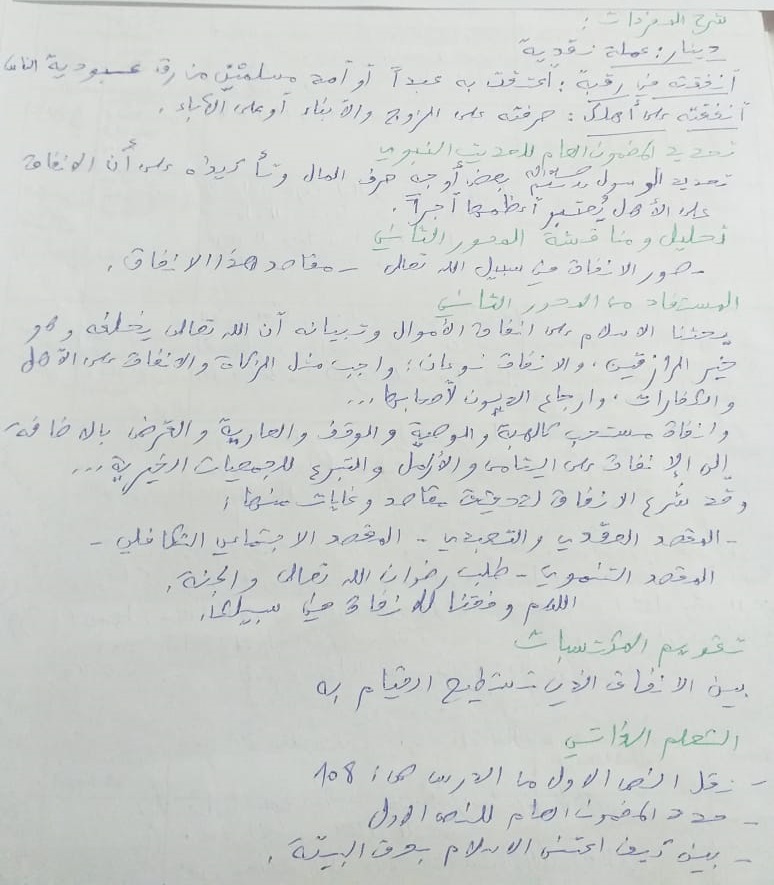 شرح المفردات :
دينار : عملة نقدية
أنفقته في رقبة : أعتقت به عبداً أو أمة مسلمتين من رق عبودية الناس
أنفقته على أهلك : صرفته على الزوج والأبناء أو على الآباء .
تحديد المضمون العام للحديث النبوي
تحديد الرسول صلى الله عليه وسلم بعض أوجه صرف المال وتأكيداه على أن الانفاق
على الأهل يُعتبر أعظمها أجراً .
تحليل ومناقشة المحور الثاني
- صور الانفاق في سبيل الله تعالى - مقاصد هذا الانفاق .
المستفاد من المحور الثاني
يحثنا الاسلام على انفاق الأموال وتبيانه أن الله تعالى يخلفه وهو
خير الرازقين ، والانفاق نوعان : واجب مثل الزكاة والانفاق على الأهل
والكفارات ، وارجاع الديون لأصحابها ...
وانفاق مستحب كالهبة والوصية والوقف والعارية والقرض بالاضافة
إلى الإنفاق على اليتامى والأرامل والتبرع للجمعيات الخيرية ...
وقد شُرع الانفاق لتحقيق مقاصد وغايات منها :
- المقصد العقدي والتعبدي - المقصد الاجتماعي التكافلي -
المقصد التنموي - طلب رضوان الله تعالى والجنة .
اللهم وفقنا للانفاق في سبيلك .
تقويم المكتسبات
بين الانفاق الذي تستطيع القيام به
التعلم الذاتي
- نقل النص الاول من الدرس ص : 108
- حدد المضمون العام للنص الاول
- بين كيف اعتنى الاسلام بحق البيئة .